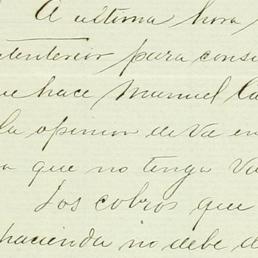 A ultima hora
para consi
ue hace Manuel Ca
la opinion de Va en
a que no tenga Va
Los cobros que
hacienda no debe d